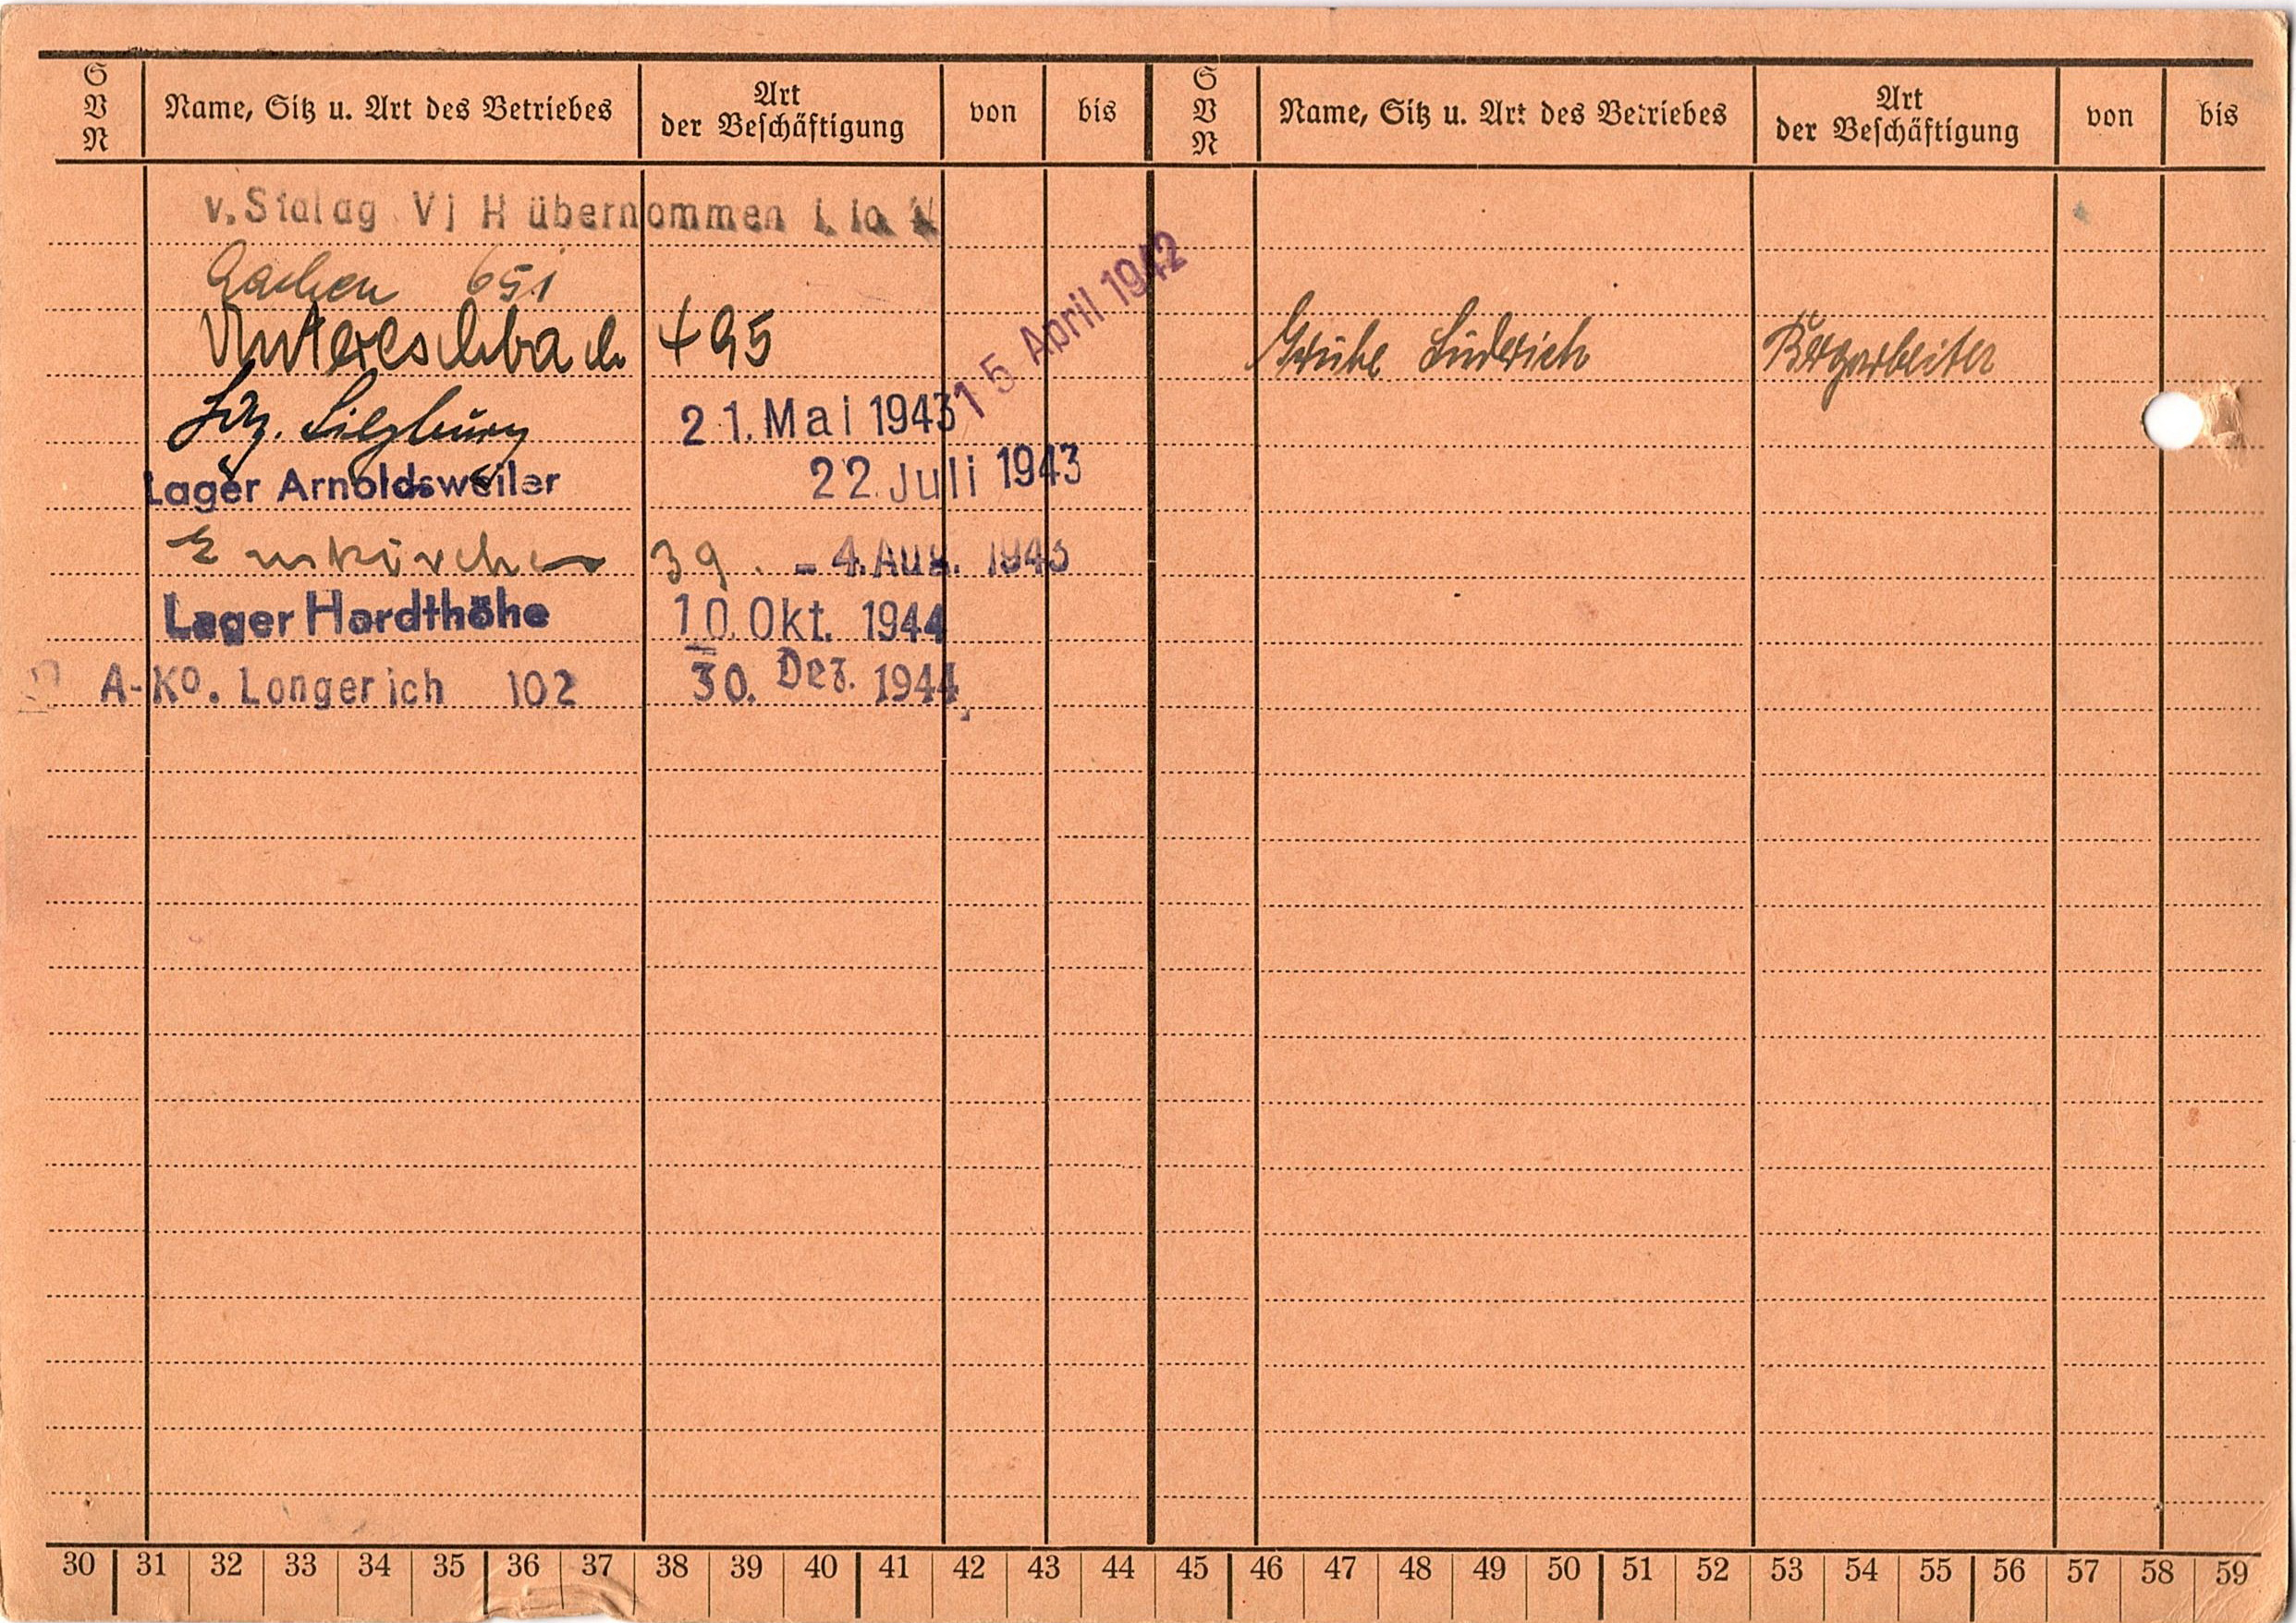 S V N Name, Sitz u. Art des Betriebes Art der Beschäftigung von bis S V N Name, Sitz u. Art des Betriebes Art der Beschäftigung von bis
v. Stalag VI H übernommen
Aachen 651
Untereschbach 495 15 April 1942 Grube Lüderich Bergarbeiter
Laz. Siegburg 21. Mai 1943
Lager Arnoldsweiler 22. Juli 1943
Euskirchen 39. -4. Aug. 1943
Lager Hardthöhe 10. Okt. 1944
A-Ko. Longerich 102 30. Dez. 1944
30 31 32 33 34 35 36 37 38 39 40 41 42 43 44 45 46 47 48 49 50 51 52 53 54 55 56 57 58 59